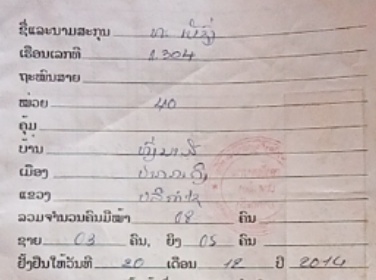 ຊື່ແລະນາມສະກຸນ ທ.
ເຮືອນເລກທີ 1.304
ຖະໜົນສາຍ
ໜ່ວຍ 40
ຄຸ້ມ
ບ້ານ
ເມືອງ ປາກກະດິງ
ແຂວງ ບໍລິຄໍາໄຊ
ລວມຈໍານວນຄົນມີໜ້າ 08 ຄົນ
ຊາຍ 03 ຄົນ, ຍິງ 05 ຄົນ
ຢັ້ງຢືນໃຫ້ວັນທີ 20 ເດືອນ 12 ປີ 2014